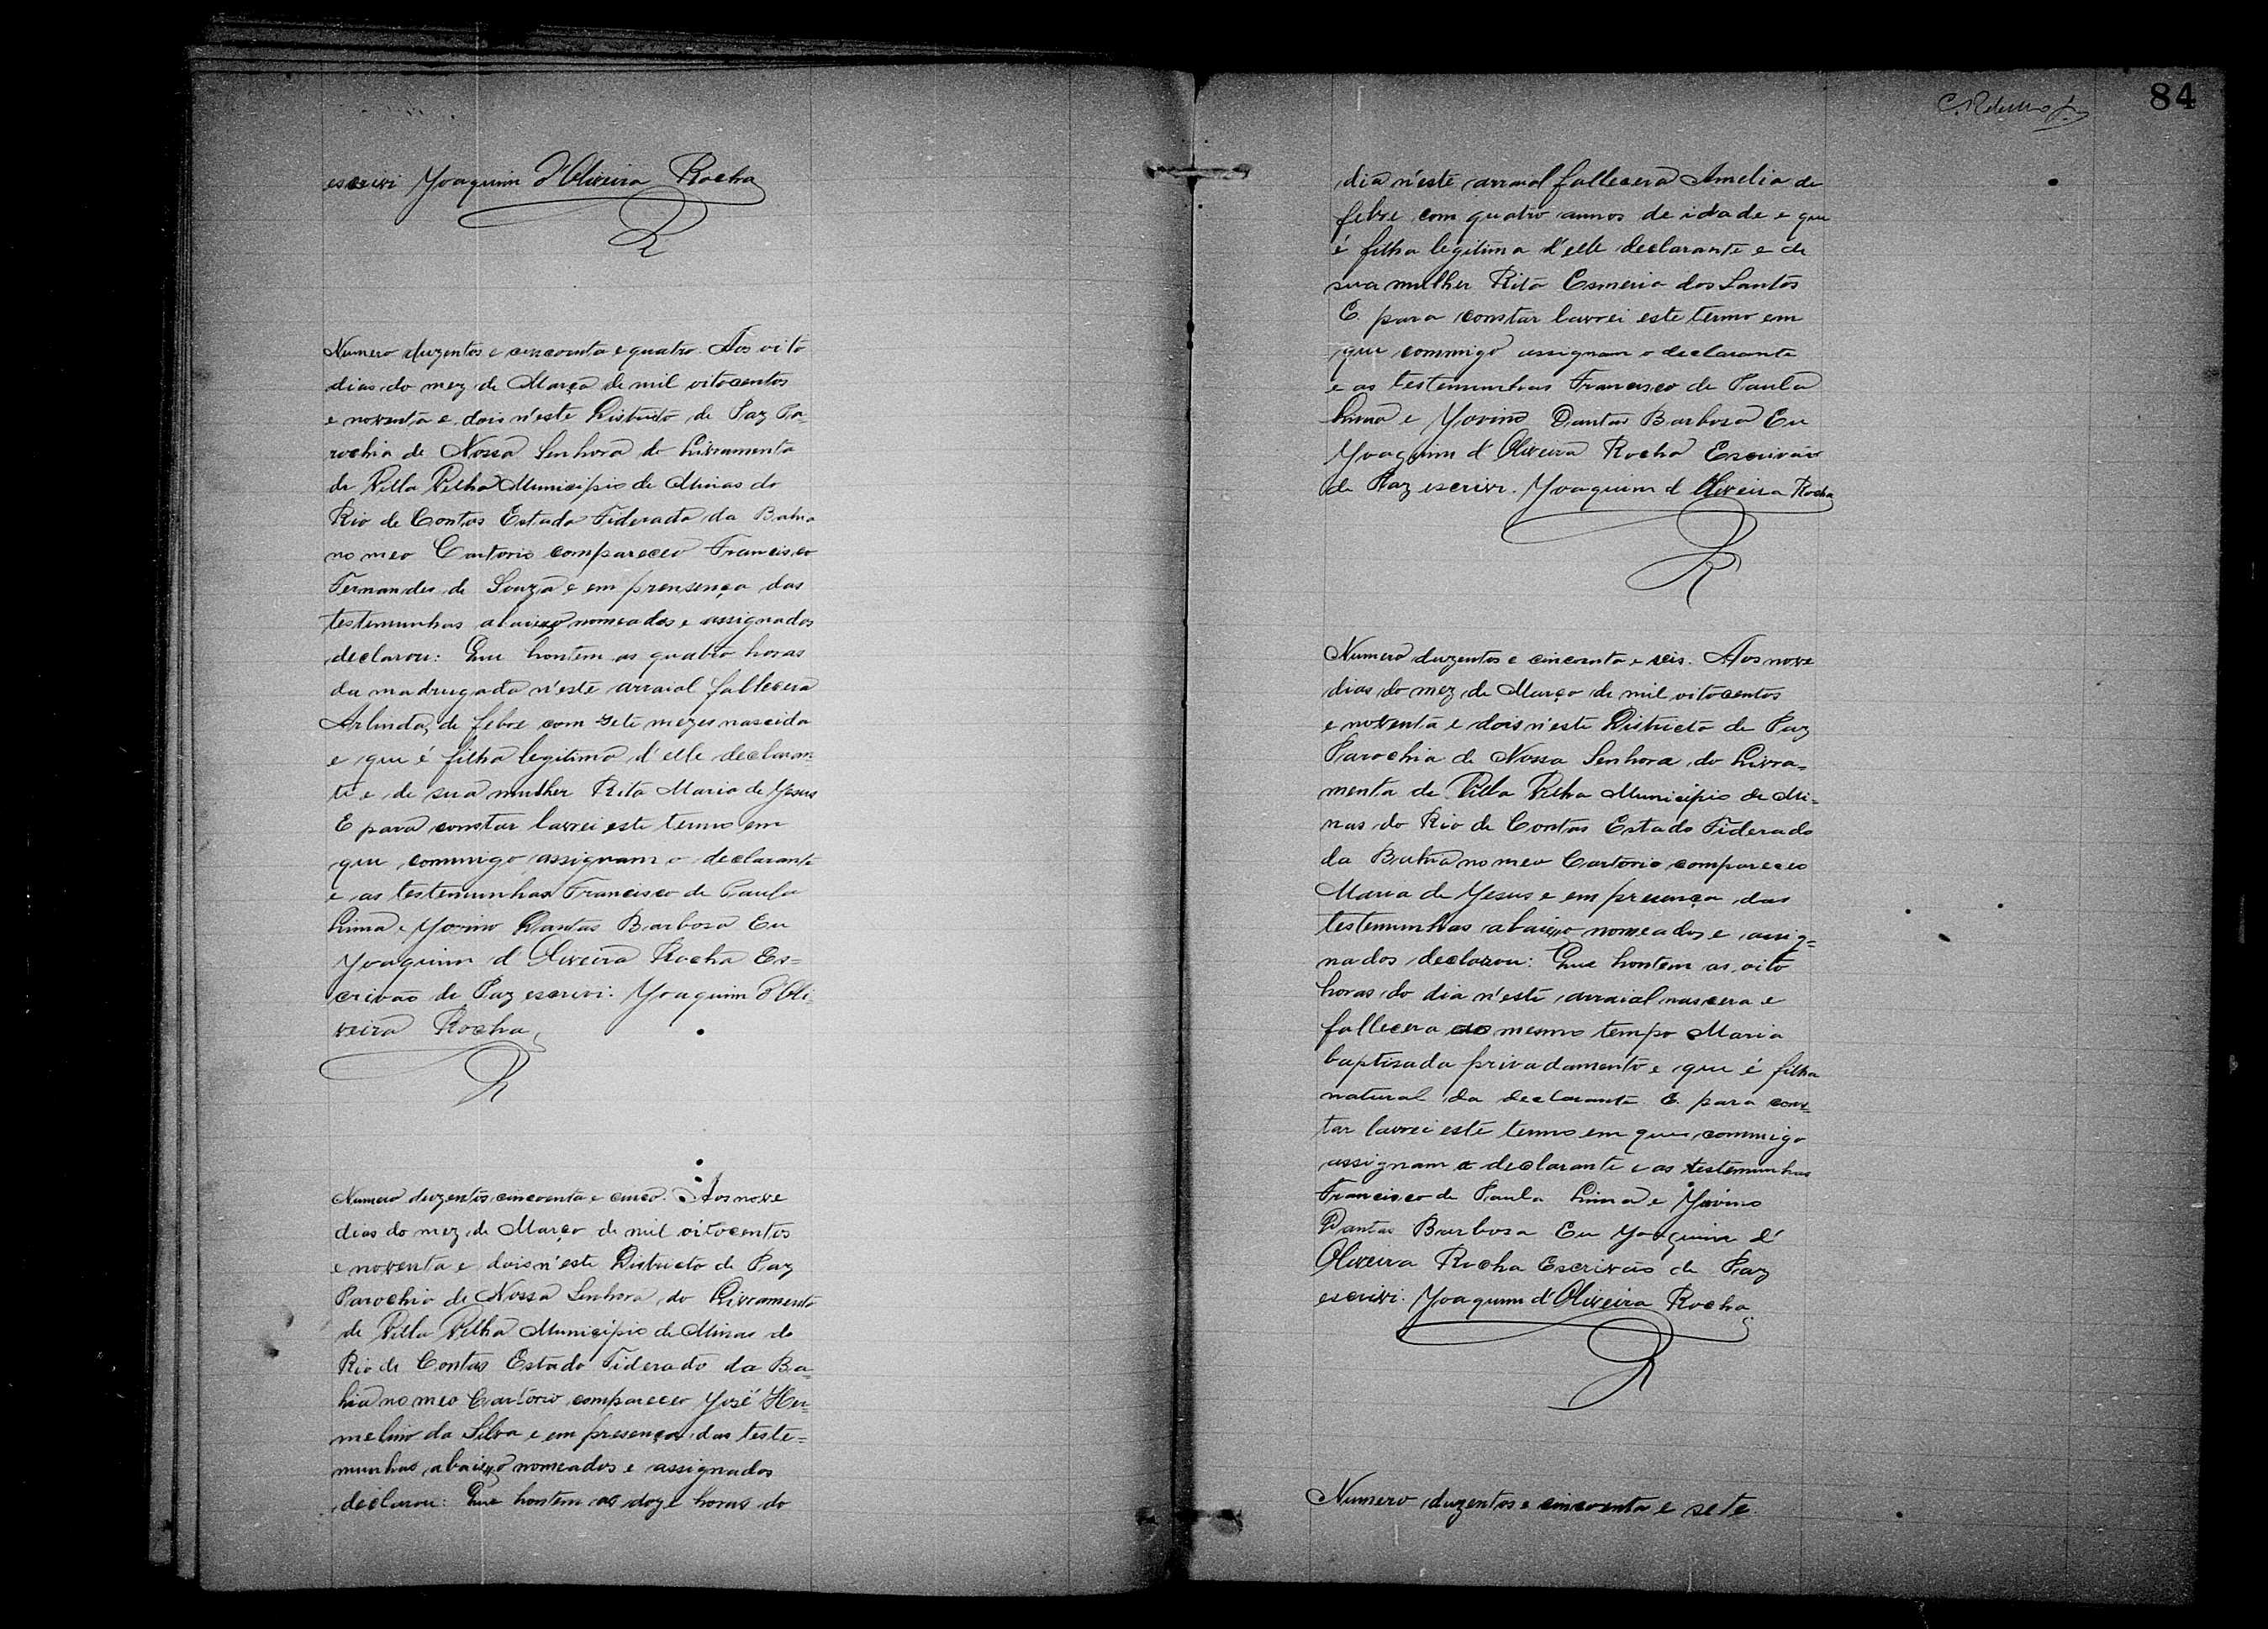 escrivi Joaquim d'Oliveira Rocha
Numero duzentos e cincoenta e quatro. Aos oito
dias do mez de Março de mil oitocentos
e noventa e dois n'este Districto de Paz Pa-
rochia de Nossa Senhora do Livramento
de Villa Velha Municipio de Minas do
Rio de Contas Estado Federado da Bahia
no meo Cartorio compareceo Francisco
Fernandes de Souza e em prensença das
testemunhas abaixo nomeadas e assignados
declarou: Que hontem as quatro horas
da madrugada n'este arraial fallecera
Arlinda, de febre com sete mezes nascida
e que é filha legitima d'elle declaran
te e de sua mulher Rita Maria de Jesus
E para constar lavrei este termo em
que commigo assignam o declarante
e as testemunhas Francisco de Paula
Lima e Jovino Dantas Barbosa Eu
Joaquim d'Oliveira Rocha Es=
crivão de Paz escrivi. Joaquim d'Oli
veira Rocha
Numero duzentos cincoenta e cinco. Aos nove
dias do mez de Março de mil oitocentos
e noventa e dois n'este Districto de Paz
Parochia de Nossa Senhora do Livramento
de Villa Velha Municipio de Minas do
Rio de Contas Estado Federado da Ba=
hia no meo Cartorio compareceo José Her=
melino da Silva e em presença das teste=
munhas abaixo nomeados e assignados
declarou: Que hontem as doze horas do
84
dia n'este arraial fallecera Amelia de
febre com quatro annos de idade e que
é filha legitima d'elle declarante e de
sua mulher Rita Esmeria dos Santos
E para constar lavrei este termo em
que commigo assignam o declarante
e as testemunhas Francisco de Paula
Lima e Jovino Dantas Barbosa Eu
Joaquim d'Oliveira Rocha Escrivão
de Paz escrivi. Joaquim d'Oliveira Rocha
Numero duzentos e cincoenta e seis. Aos nove
dias do mez de Março de mil oitocentos
e noventa e dois n'este Districto de Paz
Parochia de Nossa Senhora do Livra=
mento de Villa Velha Municipio de Mi=
nas do Rio de Contas Estado Federado
da Bahia no meo Cartorio compareceo
Maria de Jesus e em presença das
testemunhas abaixo nomeados e assig=
nados declarou: Que hontem as oito
horas do dia n'este arraial nascera e
fallecera ao mesmo tempo Maria
baptisada privadamente e que é filha
natural da declarante E para cons=
tar lavrei este termo em que commigo
assignam a declarante e as testemunhas
Francisco de Paula Lima e Jovino
Dantas Barbosa Eu Joaquim d'
Oliveira Rocha Escrivão de Paz
escrivi. Joaquim d'Oliveira Rocha
Numero duzentos e cincoenta e sete.